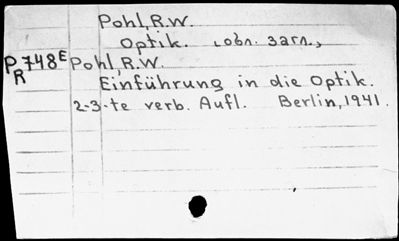 Pohl, R.W.
Optik. , обл. загл.,
P748E Pohl, R.W.
R
Einführung in die Optik.
2-3-te verb. Aufl. Berlin, 1941.